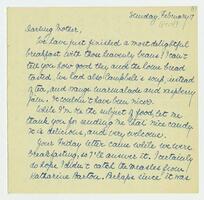 Sunday, February 7
Darling Mother,
We have just finished a most delightful
breakfast with those heavenly beans! I can't
tell you how good they and the brown bread
tasted. We had also Campbell's soup, instead
of tea, and orange marmalade and raspberry
jam. It couldn't have been nicer.
While I'm on the subject of food, let me
thank you for sending me that nice candy.
It is delicious, and very welcome.
Your Friday letter came while we were
breakfasting, so I'll answer it. I certainly
do hope I didn't catch the measles from
Katharine Barlow. Perhaps since it was